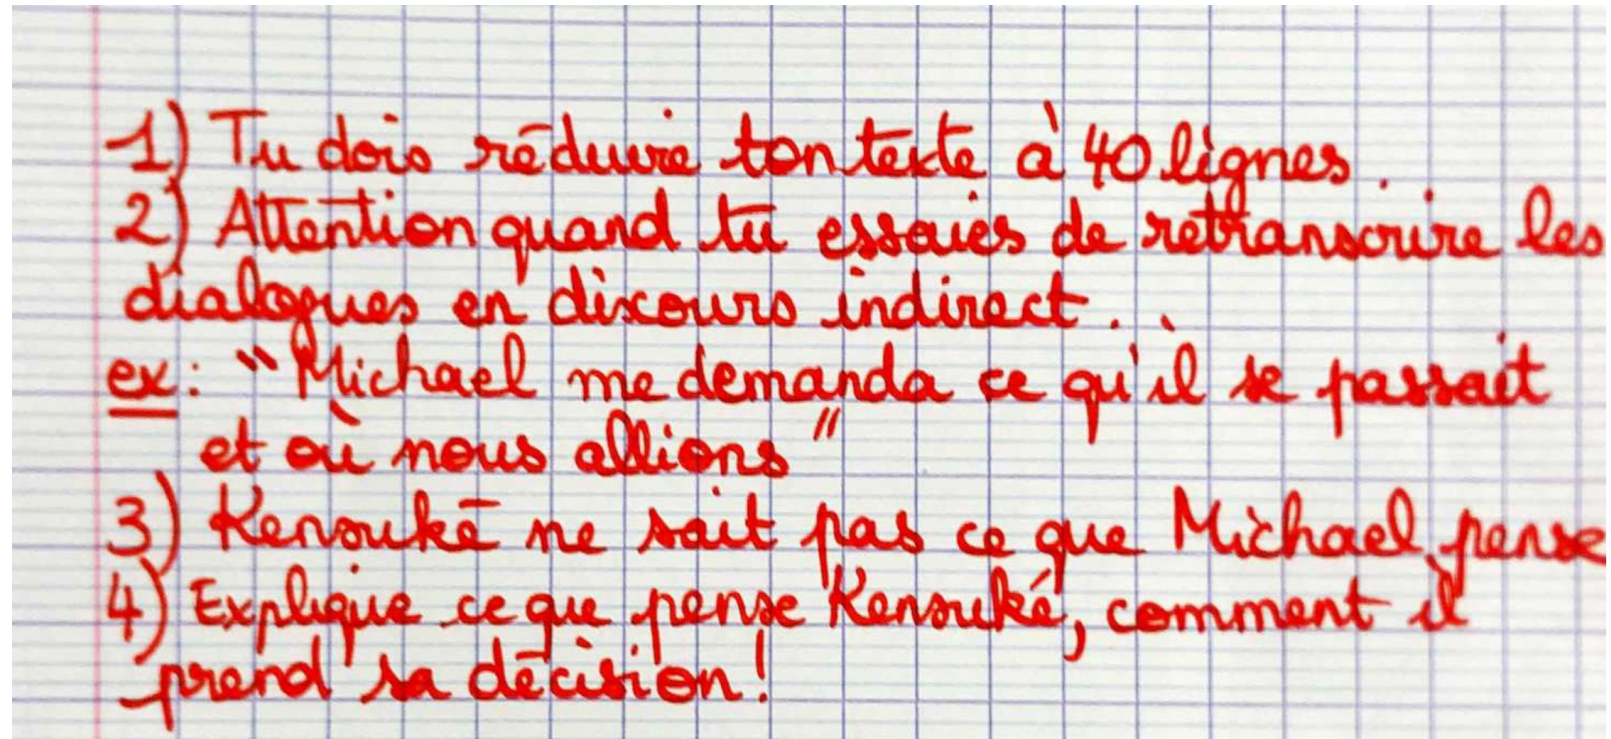 1) Tu dois réduire ton texte à 40 lignes.
2) Attention quand tu essaies de retranscrire les
dialogues en discours indirect.
ex: "Michael me demanda ce qu'il se passait
et où nous allions"
3) Kensuké ne sait pas ce que Michael pense
4) Explique ce que pense Kensuké, comment il
prend sa décision!